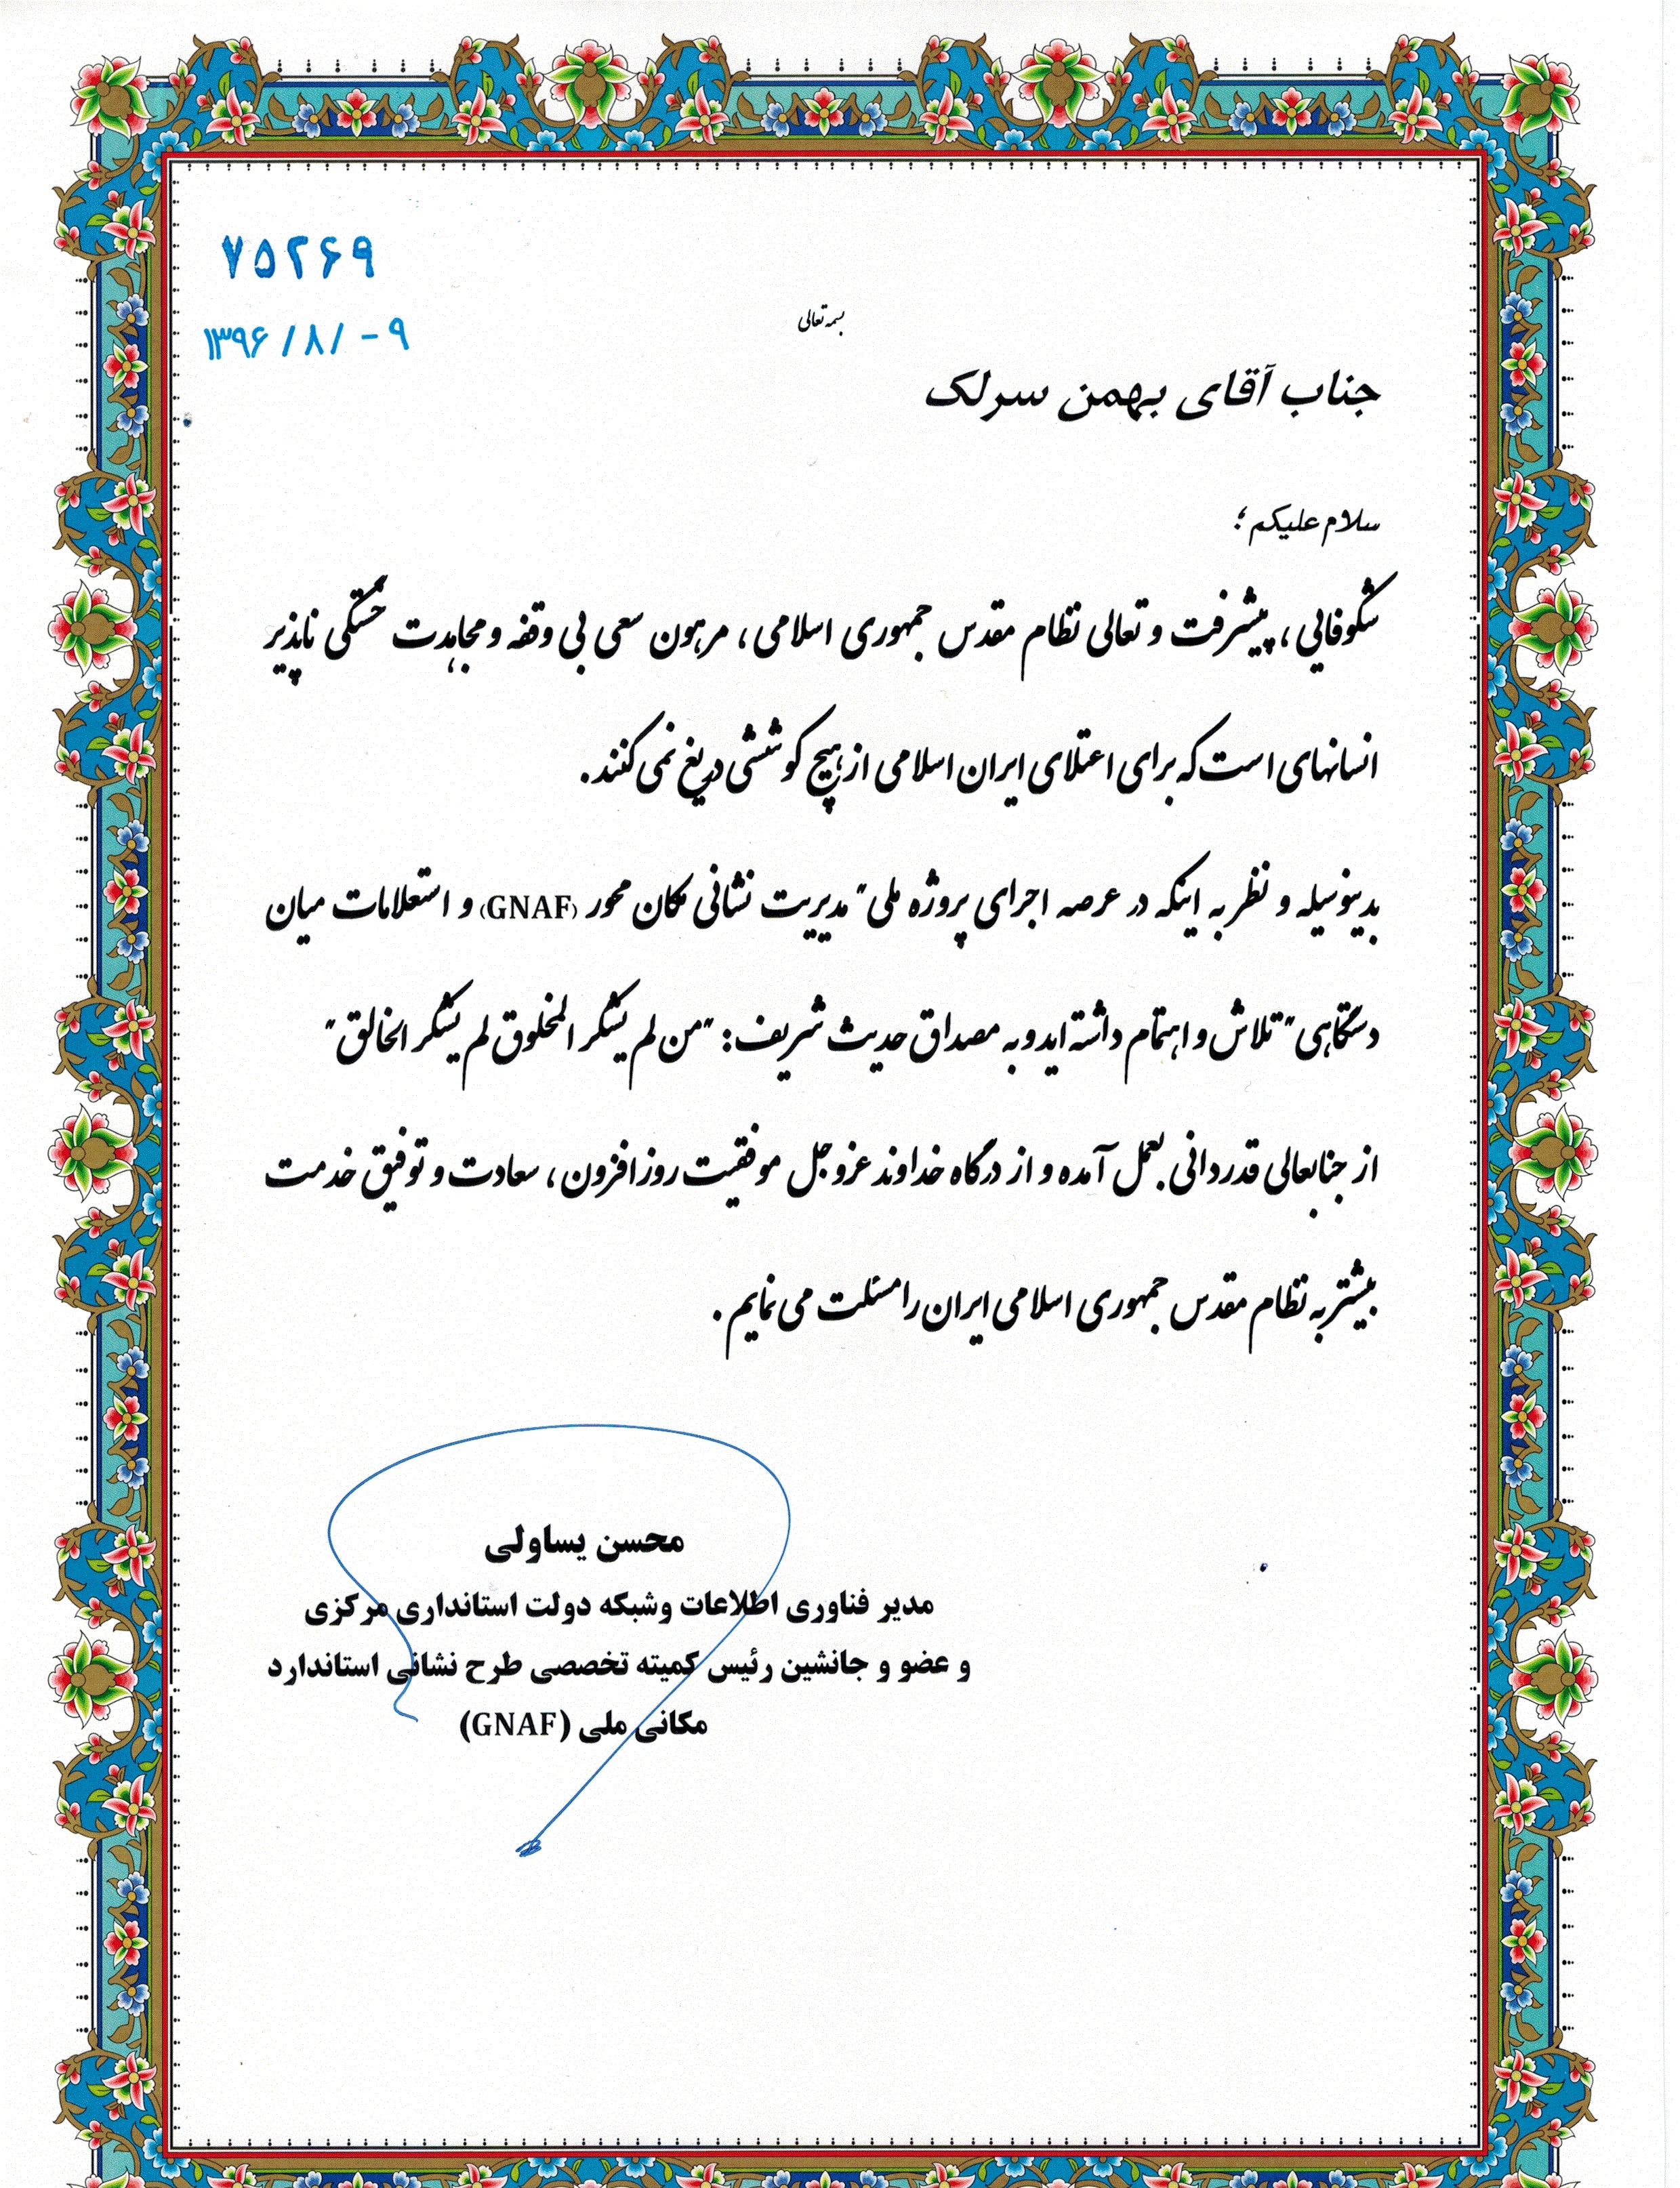 ۷۵۲۶۹
۱۳۹۶/۸/-۹
بسمه تعالی
جناب آقای بهمن سرلک
سلام علیکم ؛
شکوفایی ، پیشرفت و تعالی نظام مقدس جمهوری اسلامی ، مرهون سعی بی وقفه و مجاهدت خستگی ناپذیر
انسانهای است که برای اعتلای ایران اسلامی از هیچ کوششی دریغ نمی کنند .
بدینوسیله و نظر به اینکه در عرصه اجرای پروژه ملی " مدیریت نشانی مکان محور (GNAF) و استعلامات میان
دستگاهی " تلاش و اهتمام داشته اید و به مصداق حدیث شریف : " من لم یشکر المخلوق لم یشکر الخالق "
از جنابعالی قدردانی بعمل آمده و از درگاه خداوند عزوجل موفقیت روزافزون ، سعادت و توفیق خدمت
بیشتر به نظام مقدس جمهوری اسلامی ایران را مسئلت می نمایم .
محسن یساولی
مدیر فناوری اطلاعات وشبکه دولت استانداری مرکزی
و عضو و جانشین رئیس کمیته تخصصی طرح نشانی استاندارد
مکانی ملی (GNAF)